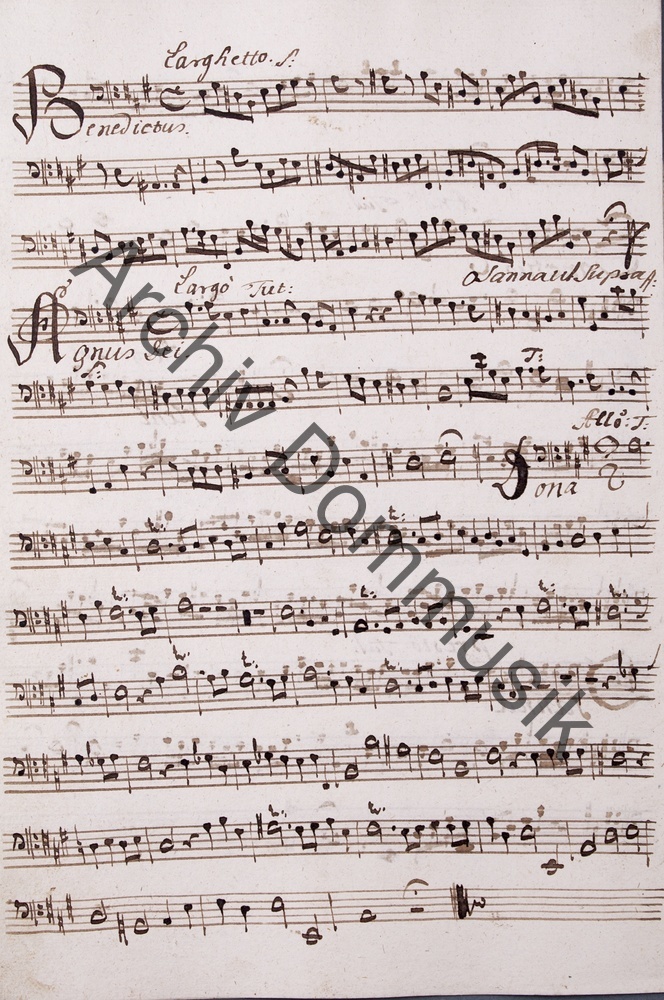 Larghetto. S:
Benedictus.
Osanna ut Supra
Largo Tut:
Agnus Dei.
S: T:
Allo: T:
Dona
t.
t.
t.
t. t.
t. t.
t. t.
Archiv Dommusik